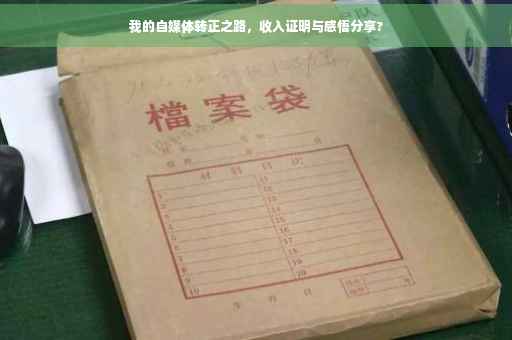 我的自媒体转正之路，收入证明与感悟分享？
檔案袋
材料目次
1 11
2 12
3 13
4 14
5 15
6 16
7 17
8 18
9 19
10 20
年 月 日